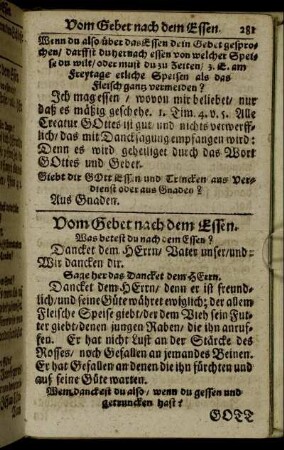 Vom Gebet nach dem Essen. 281
Wenn du also über das Essen dein Gebet gespro-
chen/ darffst du hernach essen von welcher Spei-
se du wilt/ oder must du zu Zeiten/ z. E. am
Freytage etliche Speisen als das
Fleisch gantz vermeiden?
Ich mag essen/ wovon mir beliebet/ nur
daß es mäßig geschehe. 1. Tim. 4. v. 5. Alle
Creatur GOttes ist gut/ und nichts verwerff-
lich/ das mit Dancksagung empfangen wird:
Denn es wird geheiliget durch das Wort
GOttes und Gebet.
Giebt dir GOtt Essen und Trincken aus Ver-
dienst oder aus Gnaden?
Aus Gnaden.
Vom Gebet nach dem Essen.
Was betest du nach dem Essen?
Dancket dem HErrn/ Vater unser/ und:
Wir dancken dir.
Sage her das Dancket dem HErrn.
Dancket dem HErrn/ denn er ist freund-
lich/ und seine Güte währet ewiglich; der allem
Fleische Speise giebt/ der dem Vieh sein Fut-
ter giebt/ denen jungen Raben/ die ihn anruf-
fen. Er hat nicht Lust an der Stärcke des
Rosses/ noch Gefallen an jemandes Beinen.
Er hat Gefallen an denen die ihn fürchten und
auf seine Güte warten.
Wem danckest du also/ wenn du gessen und
getruncken hast?
GOTT